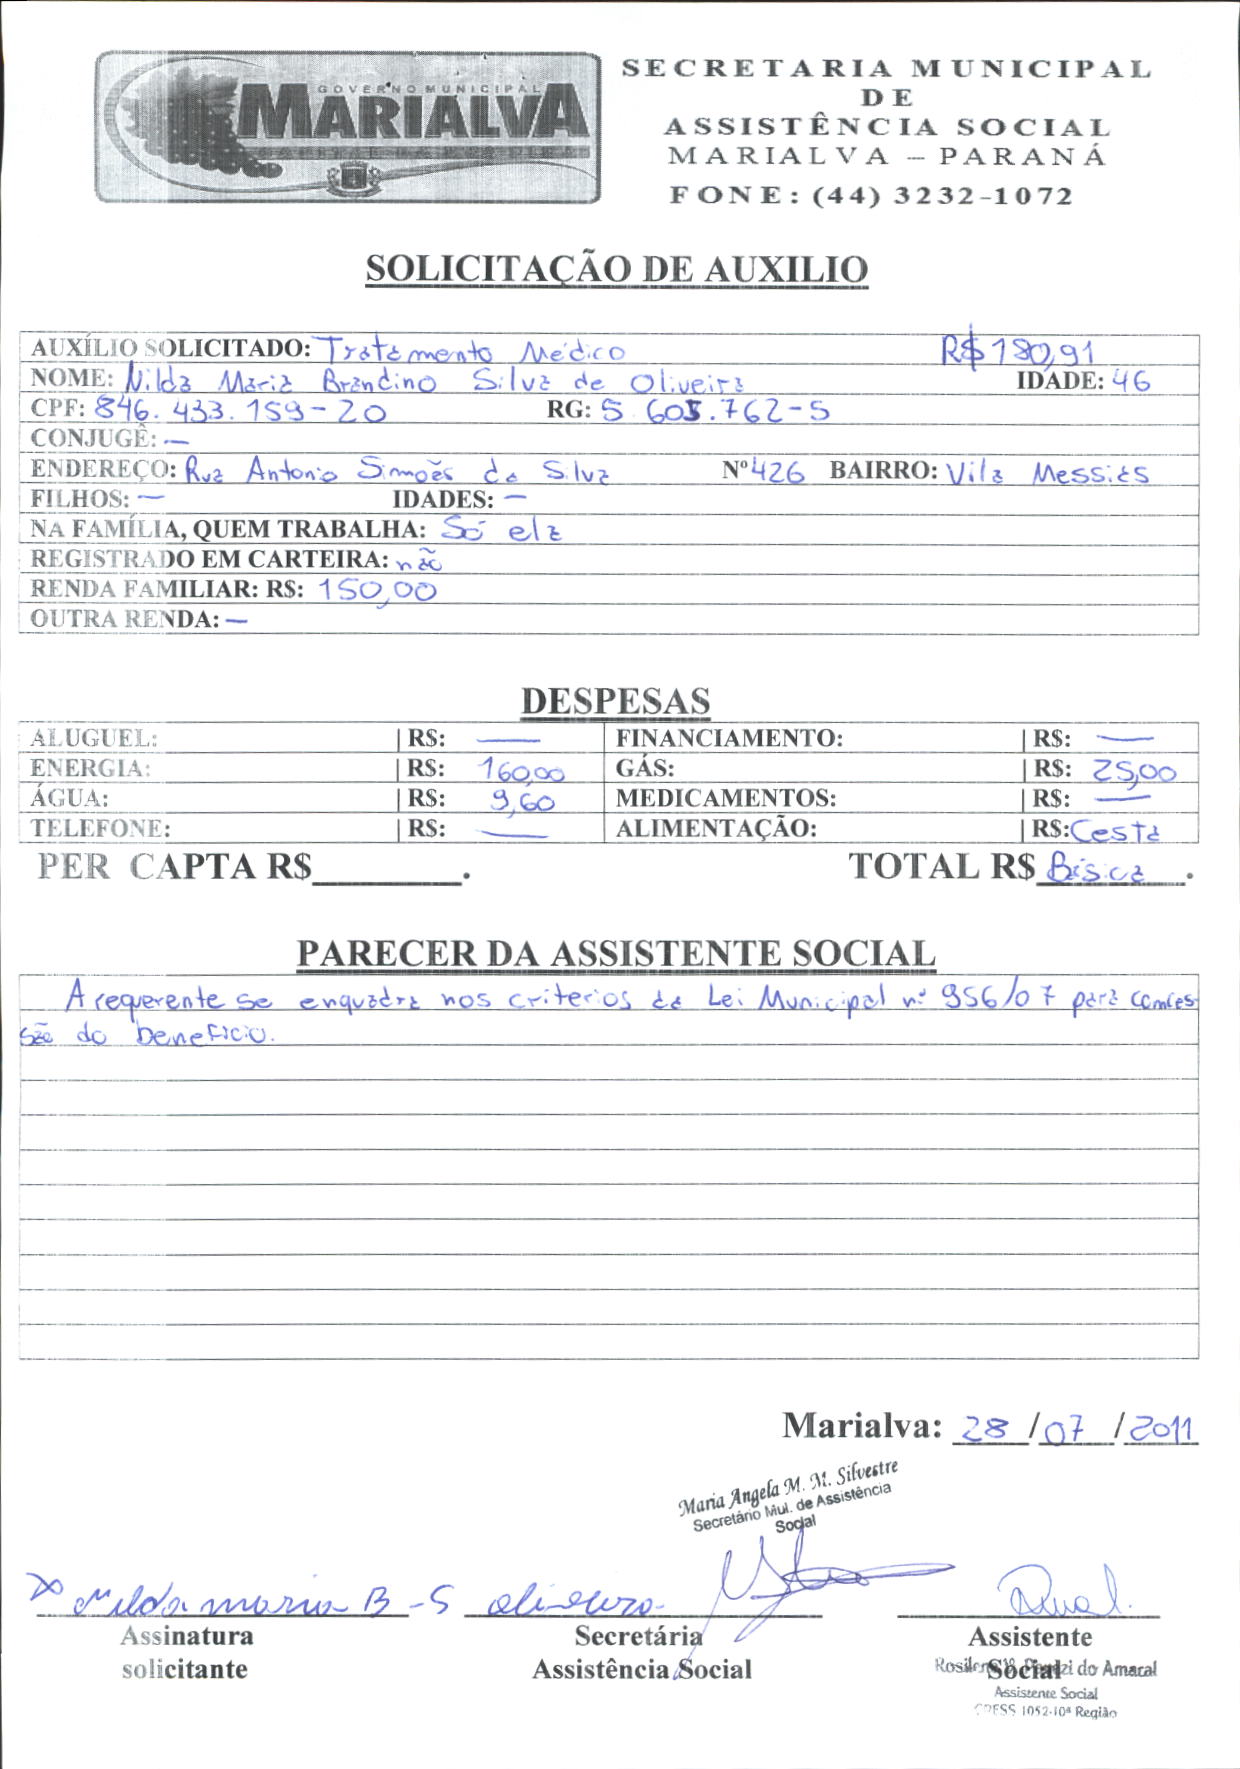 GOVERNO MUNICIPAL
MARIALVA
SECRETARIA MUNICIPAL
DE
ASSISTÊNCIA SOCIAL
MARIALVA – PARANÁ
FONE: (44) 3232-1072
SOLICITAÇÃO DE AUXILIO
AUXÍLIO SOLICITADO: Tratamento Médico R$ 180,91
NOME: Nilda Maria Brandino Silva de Oliveira IDADE: 46
CPF: 846.433.159-20 RG: 5.605.762-5
CONJUGÊ: —
ENDEREÇO: Rua Antonio Simoẽs da Silva Nº 426 BAIRRO: Vila Messias
FILHOS: — IDADES: —
NA FAMÍLIA, QUEM TRABALHA: Só ela
REGISTRADO EM CARTEIRA: não
RENDA FAMILIAR: R$: 150,00
OUTRA RENDA: —
DESPESAS
ALUGUEL: | R$: — FINANCIAMENTO: | R$: —
ENERGIA: | R$: 160,00 GÁS: | R$: 25,00
ÁGUA: | R$: 9,60 MEDICAMENTOS: | R$: —
TELEFONE: | R$: — ALIMENTAÇÃO: | R$: Cesta
PER CAPTA R$________. TOTAL R$ Básica.
PARECER DA ASSISTENTE SOCIAL
A requerente se enquadra nos criterios da Lei Municipal nº 956/07 para conces-
são do beneficio.
Marialva: 28/07/2011
Maria Angela M. M. Silvestre
Secretário Mul. de Assistência
Social
Nilda maria B-S oliveira
Assinatura Secretária Assistente
solicitante Assistência Social Social
do Amaral
Assistente Social
CRESS 1052-10ª Região